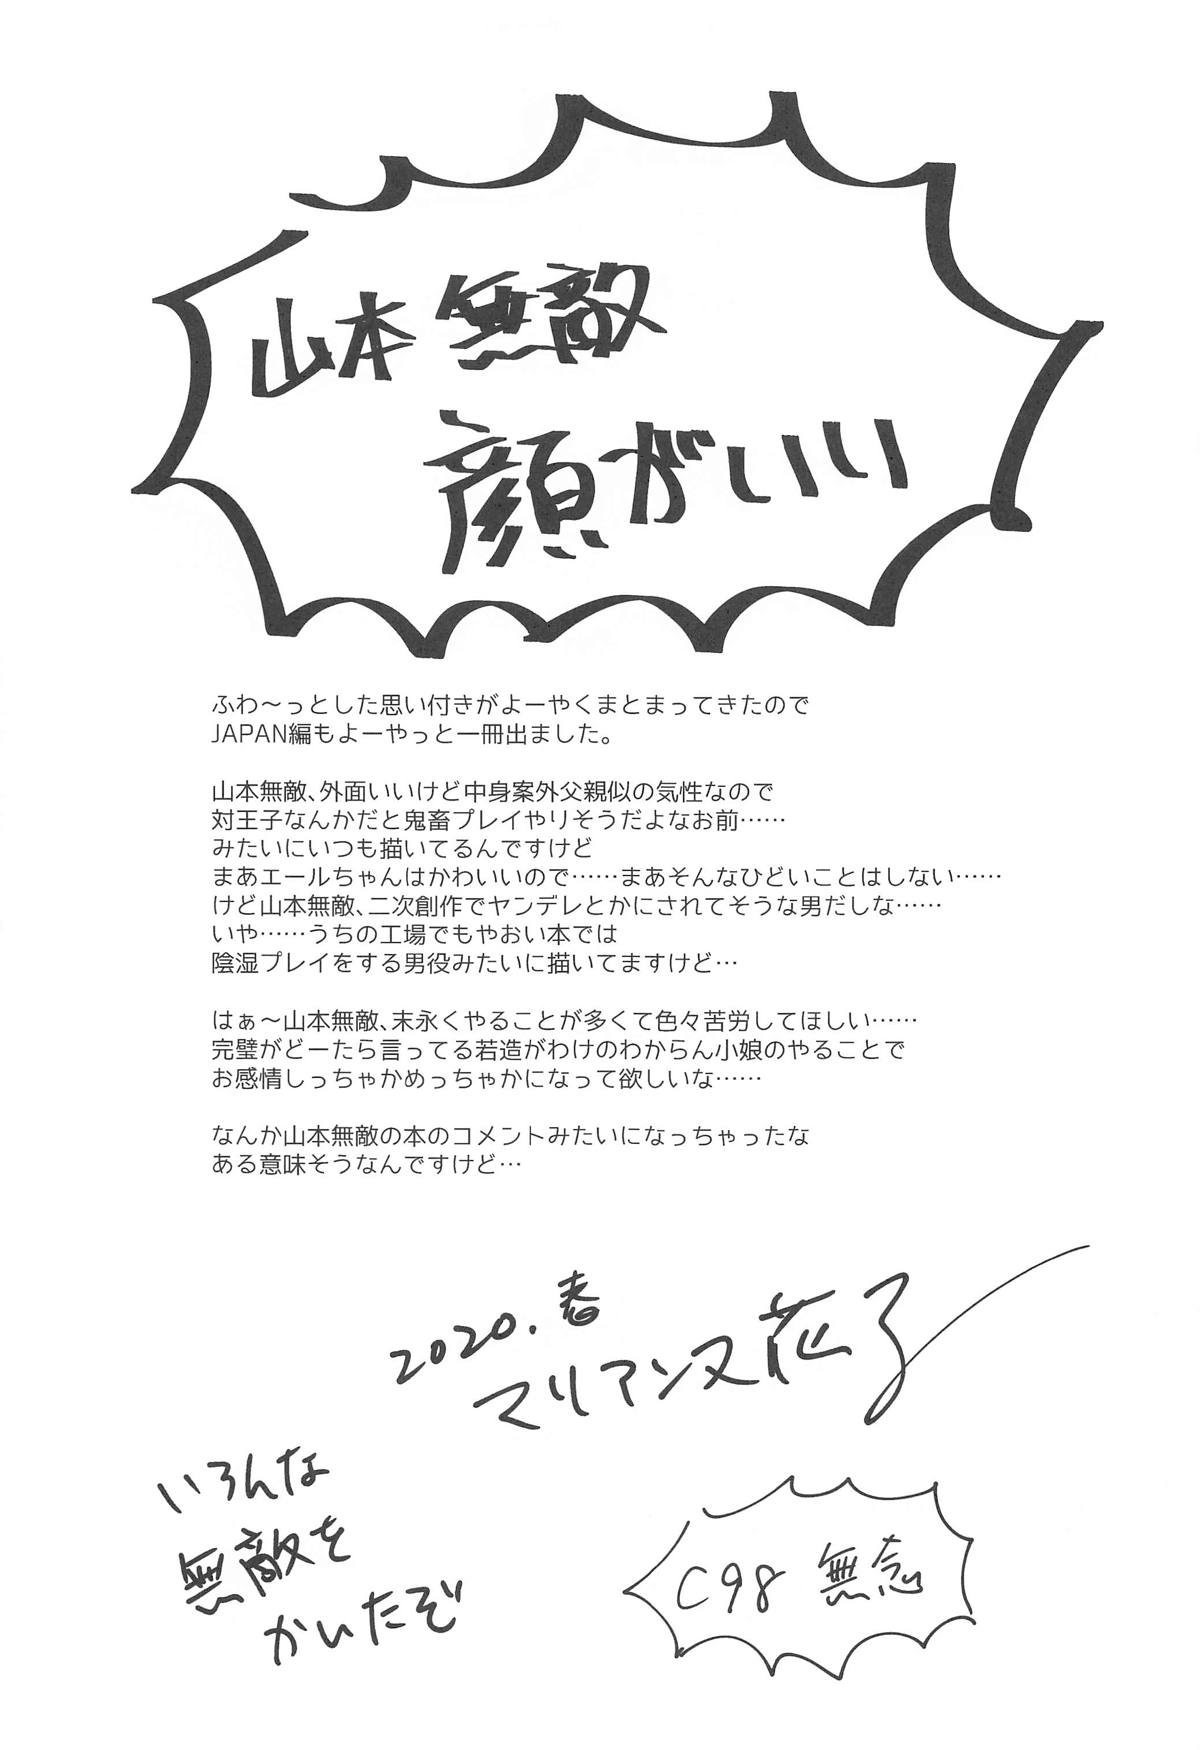 山本無敵
顔がいい
ふわ〜っとした思い付きがよーやくまとまってきたので
JAPAN編もよーやっと一冊出ました。
山本無敵、外面いいけど中身案外父親似の気性なので
対王子なんかだと鬼畜プレイやりそうだよなお前……
みたいにいつも描いてるんですけど
まあエールちゃんはかわいいので……まあそんなひどいことはしない……
けど山本無敵、二次創作でヤンデレとかにされてそうな男だしな……
いや……うちの工場でもやおい本では
陰湿プレイをする男役みたいに描いてますけど…
はぁ〜山本無敵、末永くやることが多くて色々苦労してほしい……
完璧がどーたら言ってる若造がわけのわからん小娘のやることで
お感情しっちゃかめっちゃかになって欲しいな……
なんか山本無敵の本のコメントみたいになっちゃったな
ある意味そうなんですけど…
2020.春
マリアンヌ花子
いろんな
無敵を
かいたぞ
C98 無念